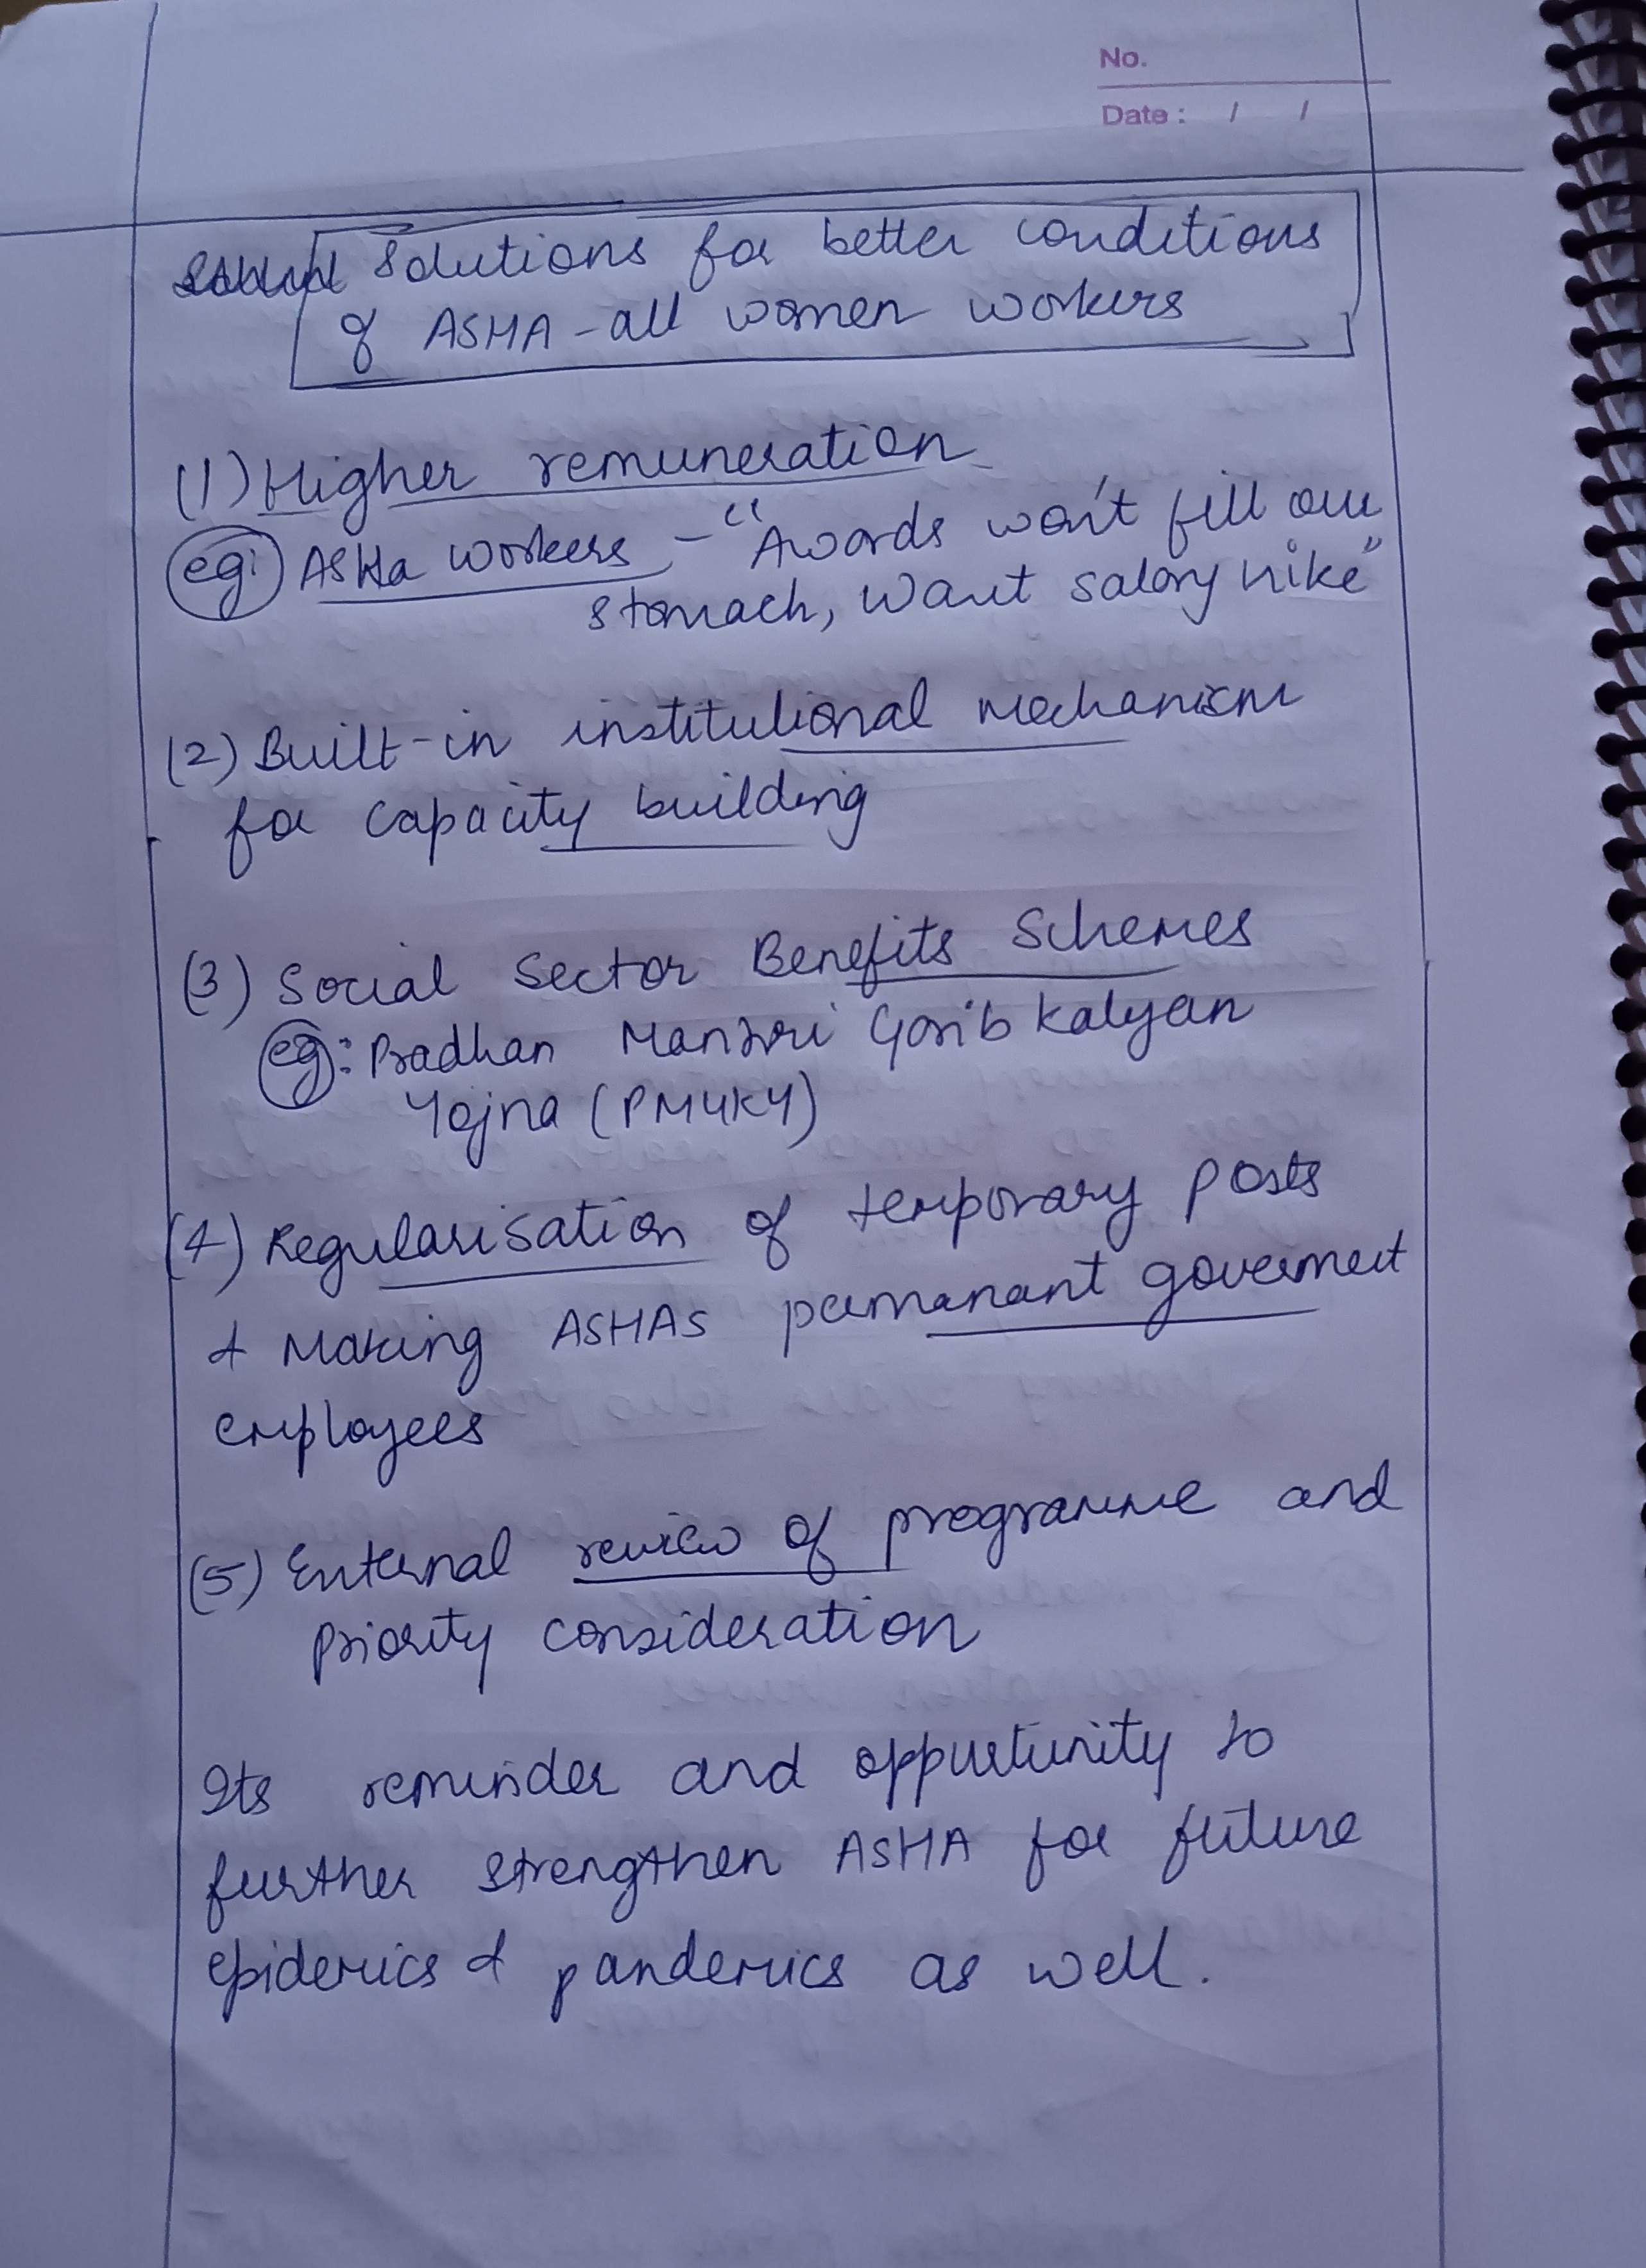 No.
Date : / /
Solutions for better conditions
of ASHA - all women workers
(1) Higher remuneration
eg: ASHa workers - "Awards won't fill our
stomach, want salary hike"
(2) Built-in institutional mechanism
for capacity building
(3) Social Sector Benefits Schemes
eg: Pradhan Mantri Garib Kalyan
Yojna (PMGKY)
(4) Regularisation of temporary posts
& Making ASHAs permanant government
employees
(5) External review of programme and
priority consideration
Its reminder and oppurtunity to
further strengthen ASHA for future
epidemics & pandemics as well.